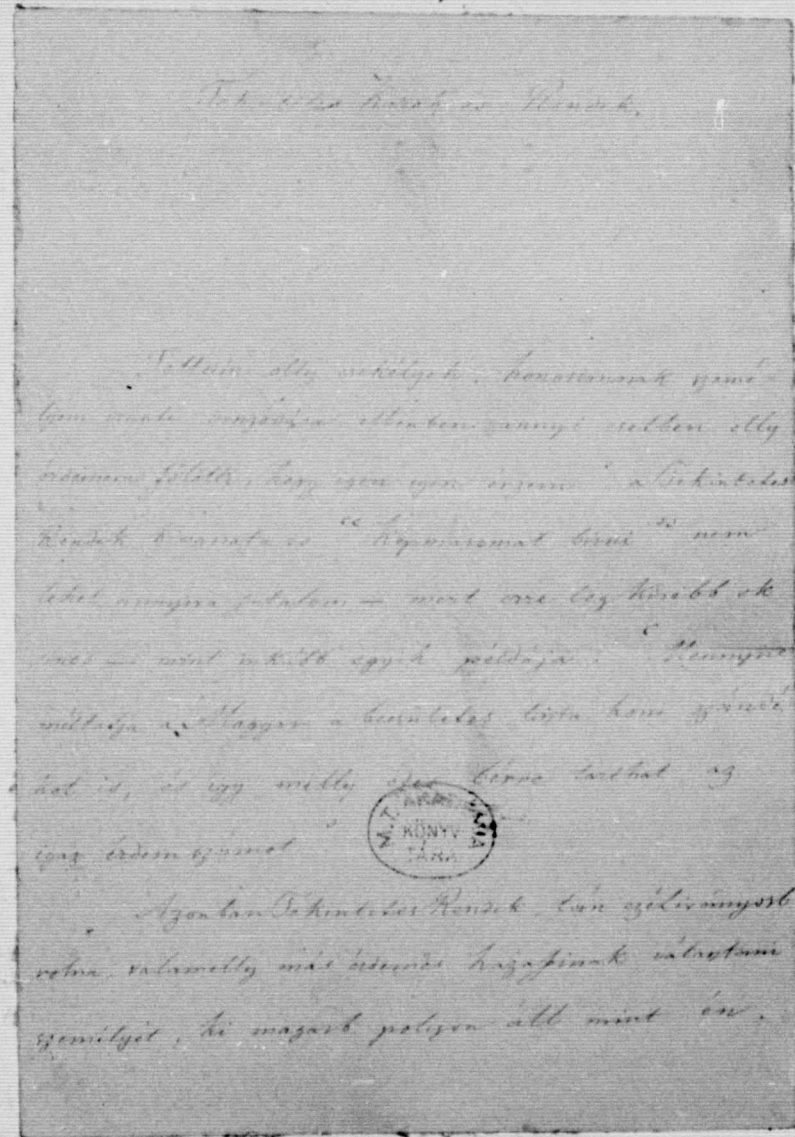 Tekintetes Karok és Rendek,
Tetteim olly csekélyek, honosimnak szemé-
lyem iránti ellenben annyi esetben olly
érdemem fölötti, hogy igen igen érzem a Tekintetes
Rendek kivánata is “Képmásomat birni” nem
lehet annyira jutalom — mert erre leg kisebb ok
nincs — mint inkább egyik példája: “Mennyire
méltatja a Magyar a becsületes tiszta honi szándé
kot is, és igy milly bérre tarthat az
igaz érdem számot”
M. T. AKADÉMIA
KÖNYV
TÁRA
Azonban Tekintetes Rendek, tán czélirányosb
volna, valamelly más érdemes hazafinak választani
személyét, ki magasb polczon áll mint én,